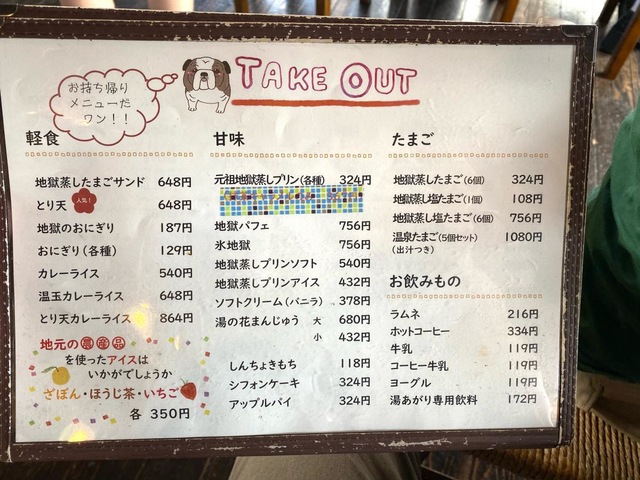 お持ち帰り
メニューだ
ワン！！
TAKE OUT
軽食
地獄蒸したまごサンド 648円
とり天 人気！ 648円
地獄のおにぎり 187円
おにぎり（各種） 129円
カレーライス 540円
温玉カレーライス 648円
とり天カレーライス 864円
地元の農産品
を使ったアイスは
いかがでしょうか
ざぼん・ほうじ茶・いちご
各 350円
甘味
元祖地獄蒸しプリン（各種） 324円
地獄パフェ 756円
氷地獄 756円
地獄蒸しプリンソフト 540円
地獄蒸しプリンアイス 432円
ソフトクリーム（バニラ） 378円
湯の花まんじゅう 大 680円
小 432円
しんちょきもち 118円
シフォンケーキ 324円
アップルパイ 324円
たまご
地獄蒸したまご（6個） 324円
地獄蒸し塩たまご（1個） 108円
地獄蒸し塩たまご（6個） 756円
温泉たまご（5個セット） 1080円
（出汁つき）
お飲みもの
ラムネ 216円
ホットコーヒー 334円
牛乳 119円
コーヒー牛乳 119円
ヨーグル 119円
湯あがり専用飲料 172円